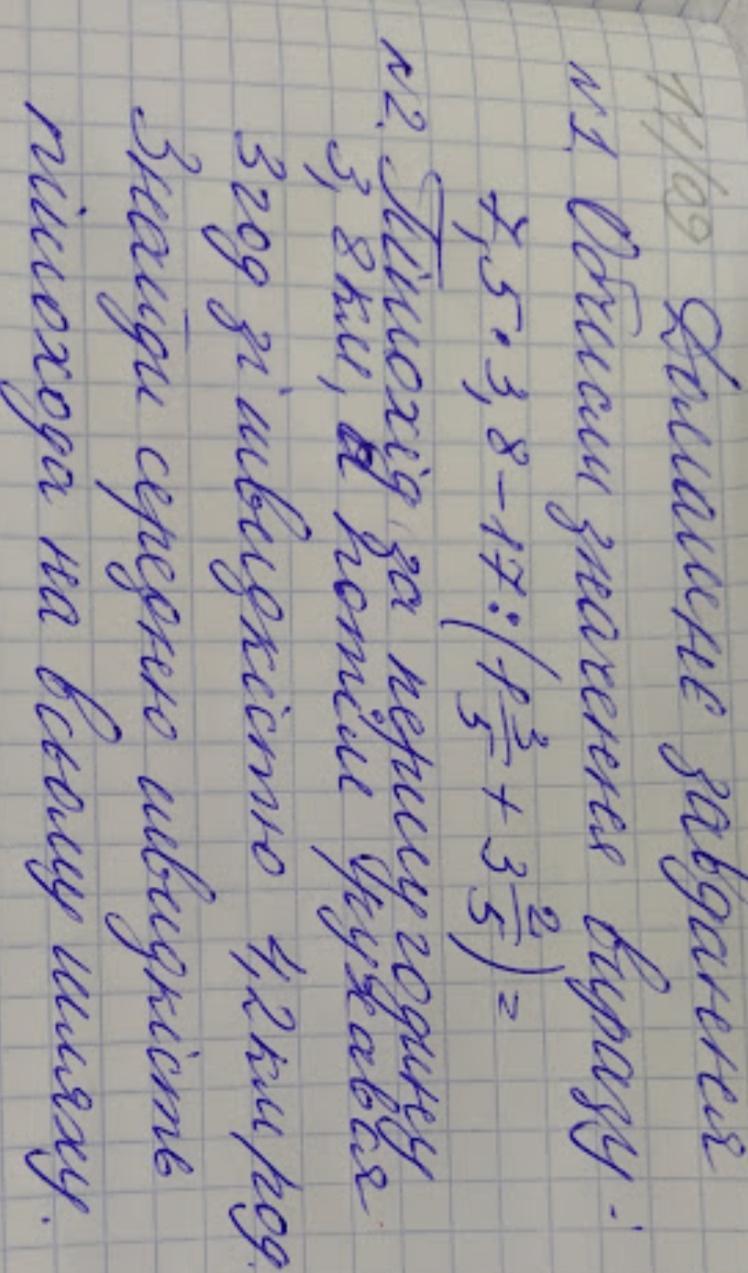 11/09
Домашнє завдання
№1. Обчисли значення виразу:
7,5 • 3,8 - 17 : (1 3/5 + 3 2/5) =
№2. Пішохід за першу годину
3,8 км, а потім рухався
3 год зі швидкістю 4,2 км/год.
Знайди середню швидкість
пішохода на всьому шляху.